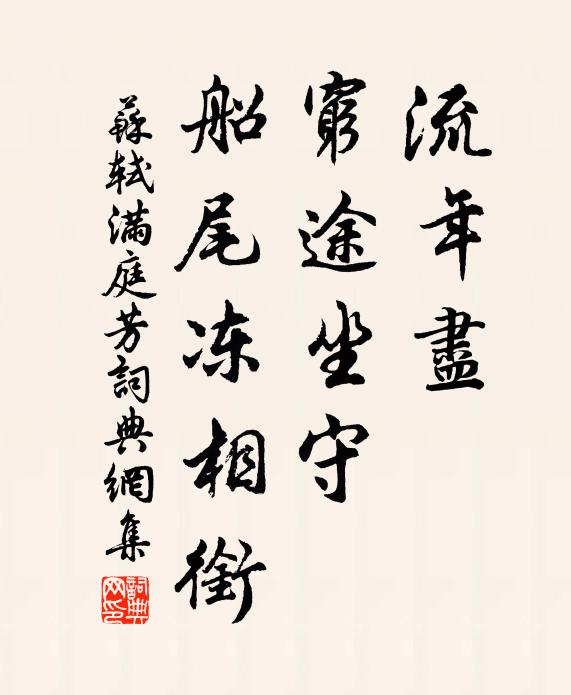 流年盡
窮途坐守
船尾凍相銜
蘇軾滿庭芳詞典網集
詞典網印